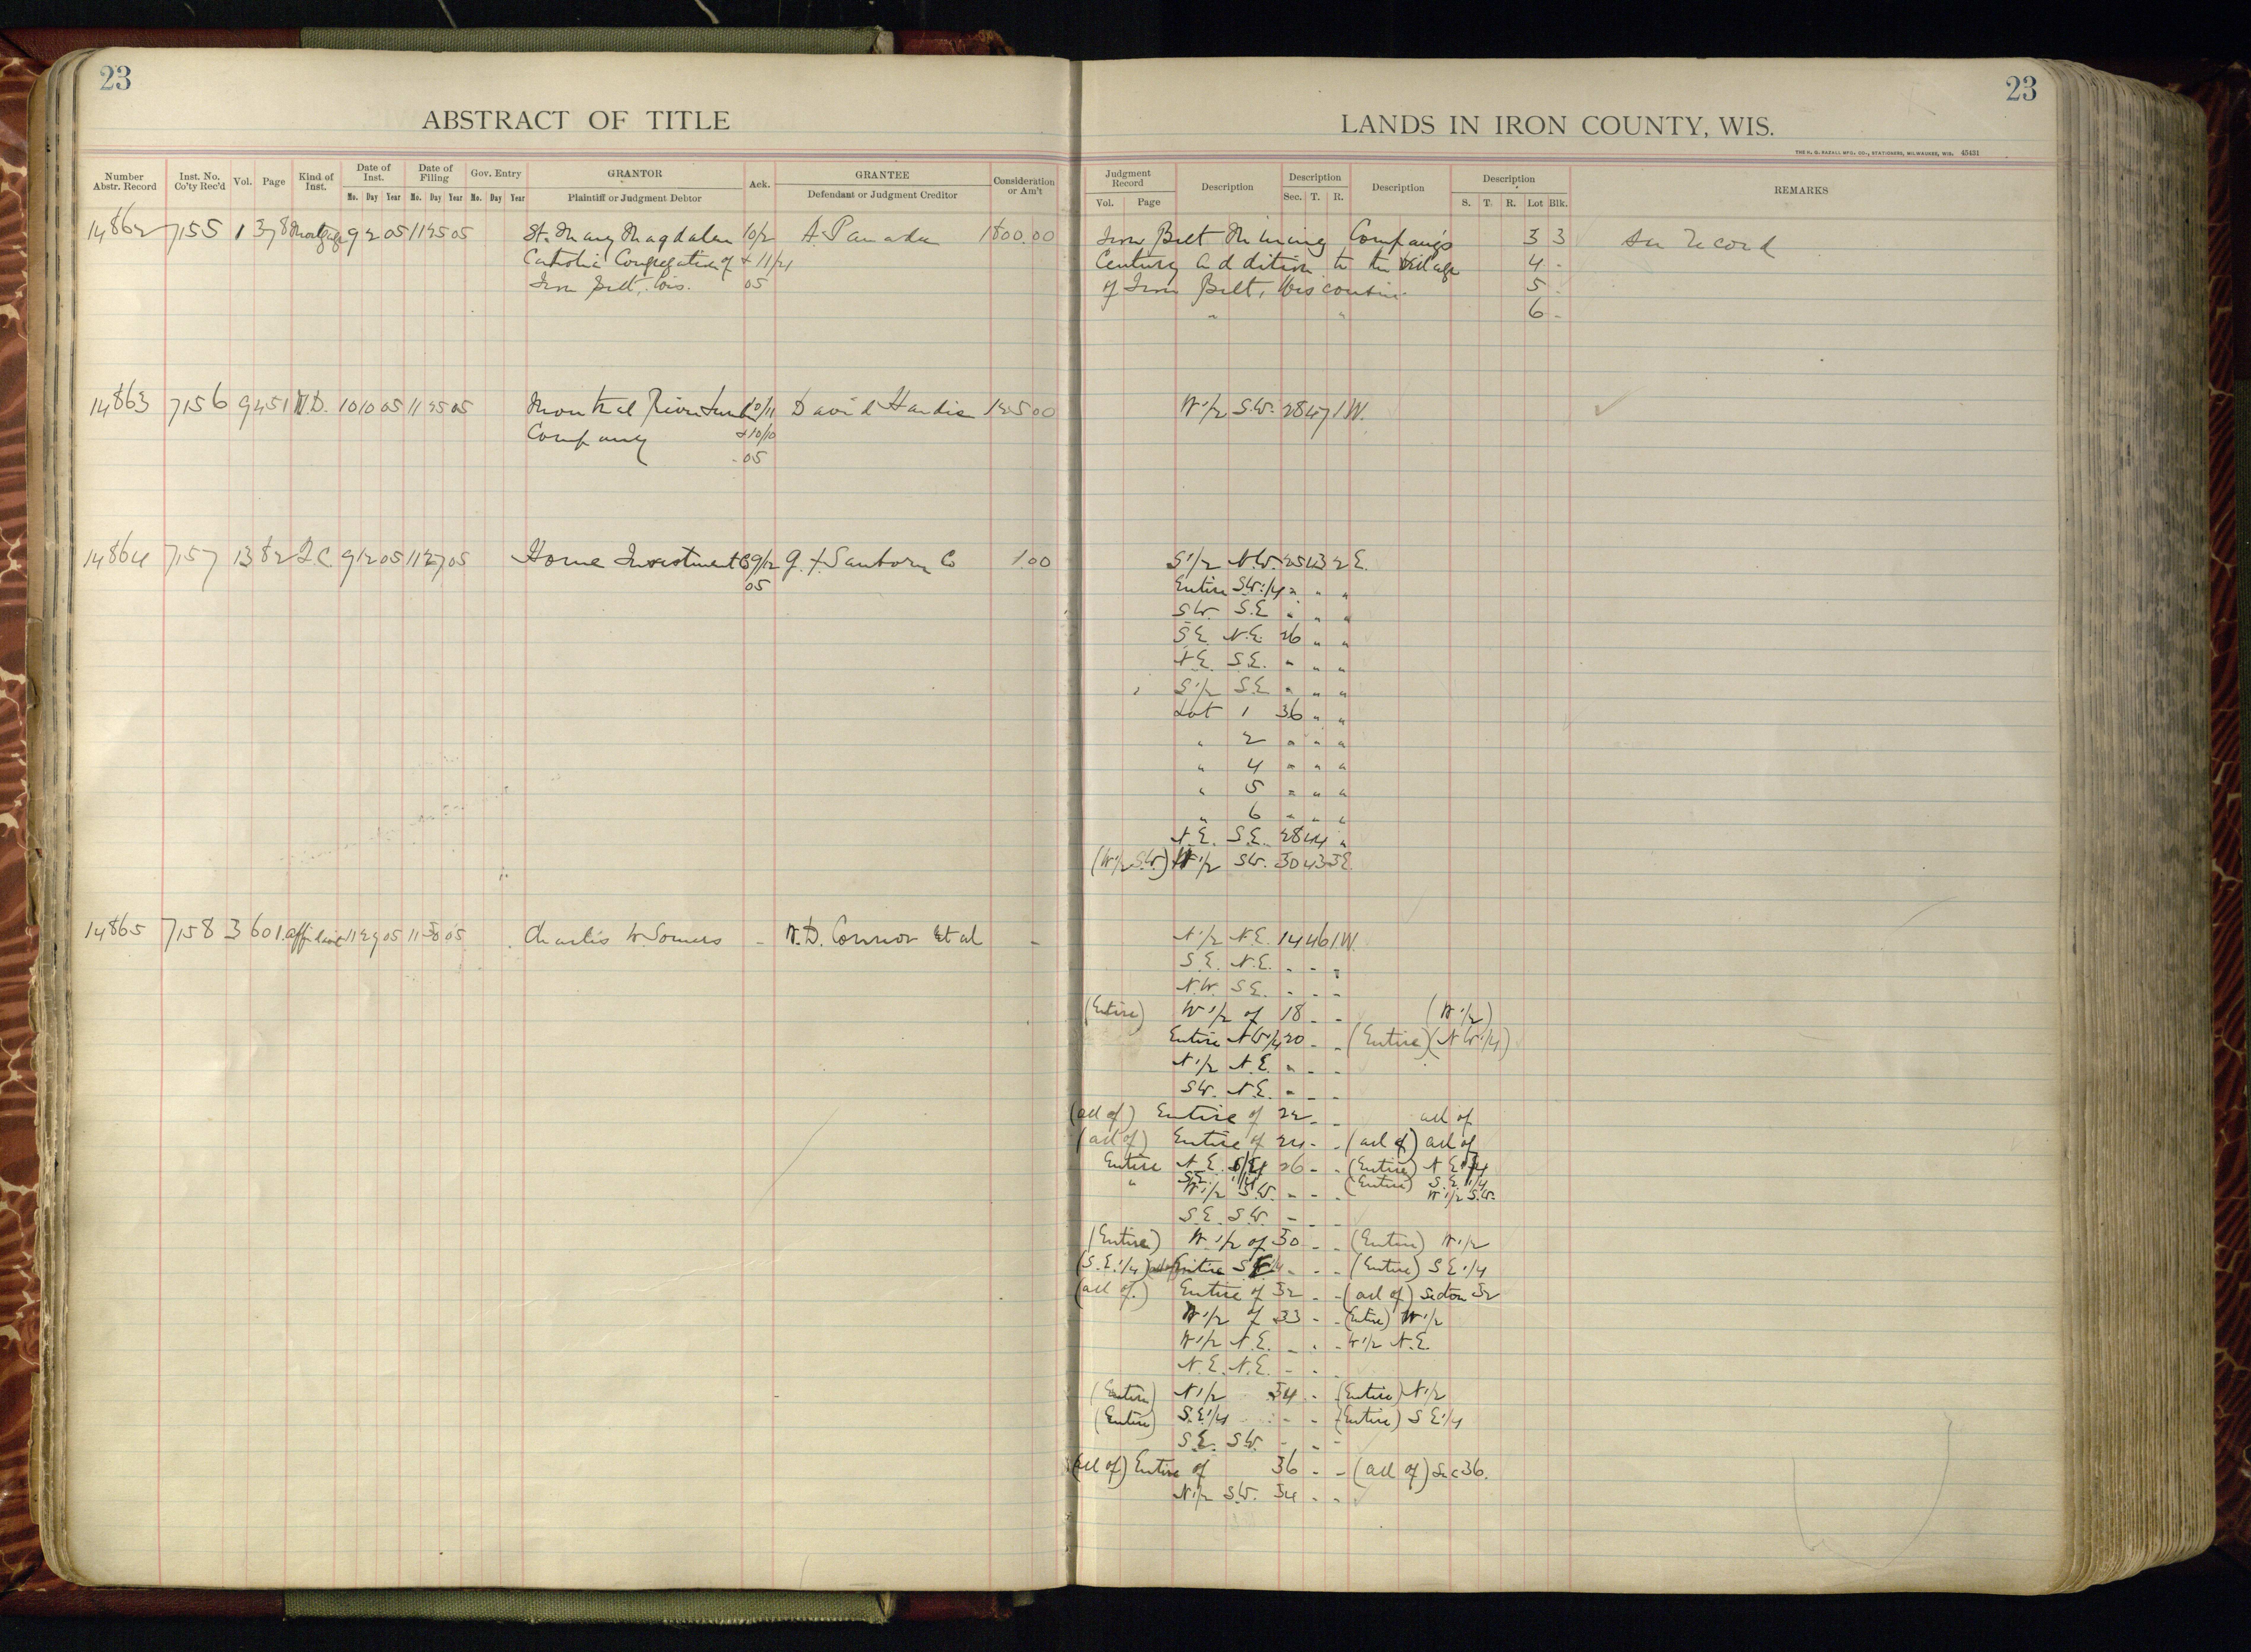 23
ABSTRACT OF TITLE
Number Abstr. Record
Inst. No. Co'ty Rec'd
Vol.
Page
Kind of Inst.
Date of Inst.
Date of Filing
Gov. Entry
GRANTOR
Ack.
GRANTEE
Consideration or Am't
Mo. Day Year Mo. Day Year Mo. Day Year
Plaintiff or Judgment Debtor
Defendant or Judgment Creditor
14862 7155 1 378 Mortgage 9 2 05 11 25 05 St. Mary Magdalen 10/2 A. 1800.00
Catholic Congregation of + 11/21
Iron Belt, Wis. 05
14863 7156 9 451 W.D. 10 10 05 11 25 05 Montreal River Lumber 10/11 David Hardie 125 00
Company + 10/10
05
14864 7157 13 82 Q.C. 9 12 05 11 27 05 Home Investment Co 9/12 G. F. Sanborn Co 1.00
05
14865 7158 3 601 affidavit 11 29 05 11 30 05 Charles W Somers - W.D. Connor et al -
23
LANDS IN IRON COUNTY, WIS.
THE H. G. RAZALL MFG. CO., STATIONERS, MILWAUKEE, WIS. 45431
Judgment Record
Description
Description
Description
Description
REMARKS
Vol. Page
Sec. T. R.
S. T. R. Lot Blk.
Iron Belt Mining Company's 3 3
Century addition to the Village 4 "
of Iron Belt, Wisconsin. 5 "
" " 6 "
W 1/2 S.W. 28 47 1 W.
S 1/2 N.W. 25 43 2 E.
Entire S.W. 1/4 " " "
SW S.E " " "
S.E. N.E. 26 " "
N.E. S.E. " " "
S 1/2 S.E " " "
Lot 1 36 " "
" 2 " " "
" 4 " " "
" 5 " " "
" 6 " " "
N.E. S.E. 28 44 "
(W 1/2 S.W.) W 1/2 SW. 30 43 3 E.
N 1/2 N.E. 14 46 1 W.
S.E. N.E. " " "
N.W. S.E. " " "
(Entire) W 1/2 of 18 " " (W 1/2)
Entire NW 1/4 20 " " (Entire) (NW 1/4)
N 1/2 N.E. " " "
SW. N.E. " " "
(all of) Entire of 22 " " all of
(all of) Entire of 24 " " (all of) all of
Entire N.E. 1/4 26 " " (Entire) N E 1/4
" S.E. 1/4 (Entire) S.E. 1/4
W 1/2 S.W. " " " W 1/2 S.W.
S.E. S.W. " " "
(Entire) W 1/2 of 30 " " (Entire) W 1/2
(S.E. 1/4) Entire S E 1/4 " " " (Entire) S E 1/4
(all of) Entire of 32 " " (all of) Section 32
W 1/2 of 33 " " (Entire) W 1/2
W 1/2 N.E. " " " W 1/2 N.E.
N.E. N.E. " " "
(Entire) N 1/2 34 " " (Entire) N 1/2
(Entire) S.E. 1/4 " " " (Entire) S E 1/4
S.E. S.W. " " "
(all of) Entire of 36 " " (all of) Sec 36.
N 1/2 S.W. 34 " "